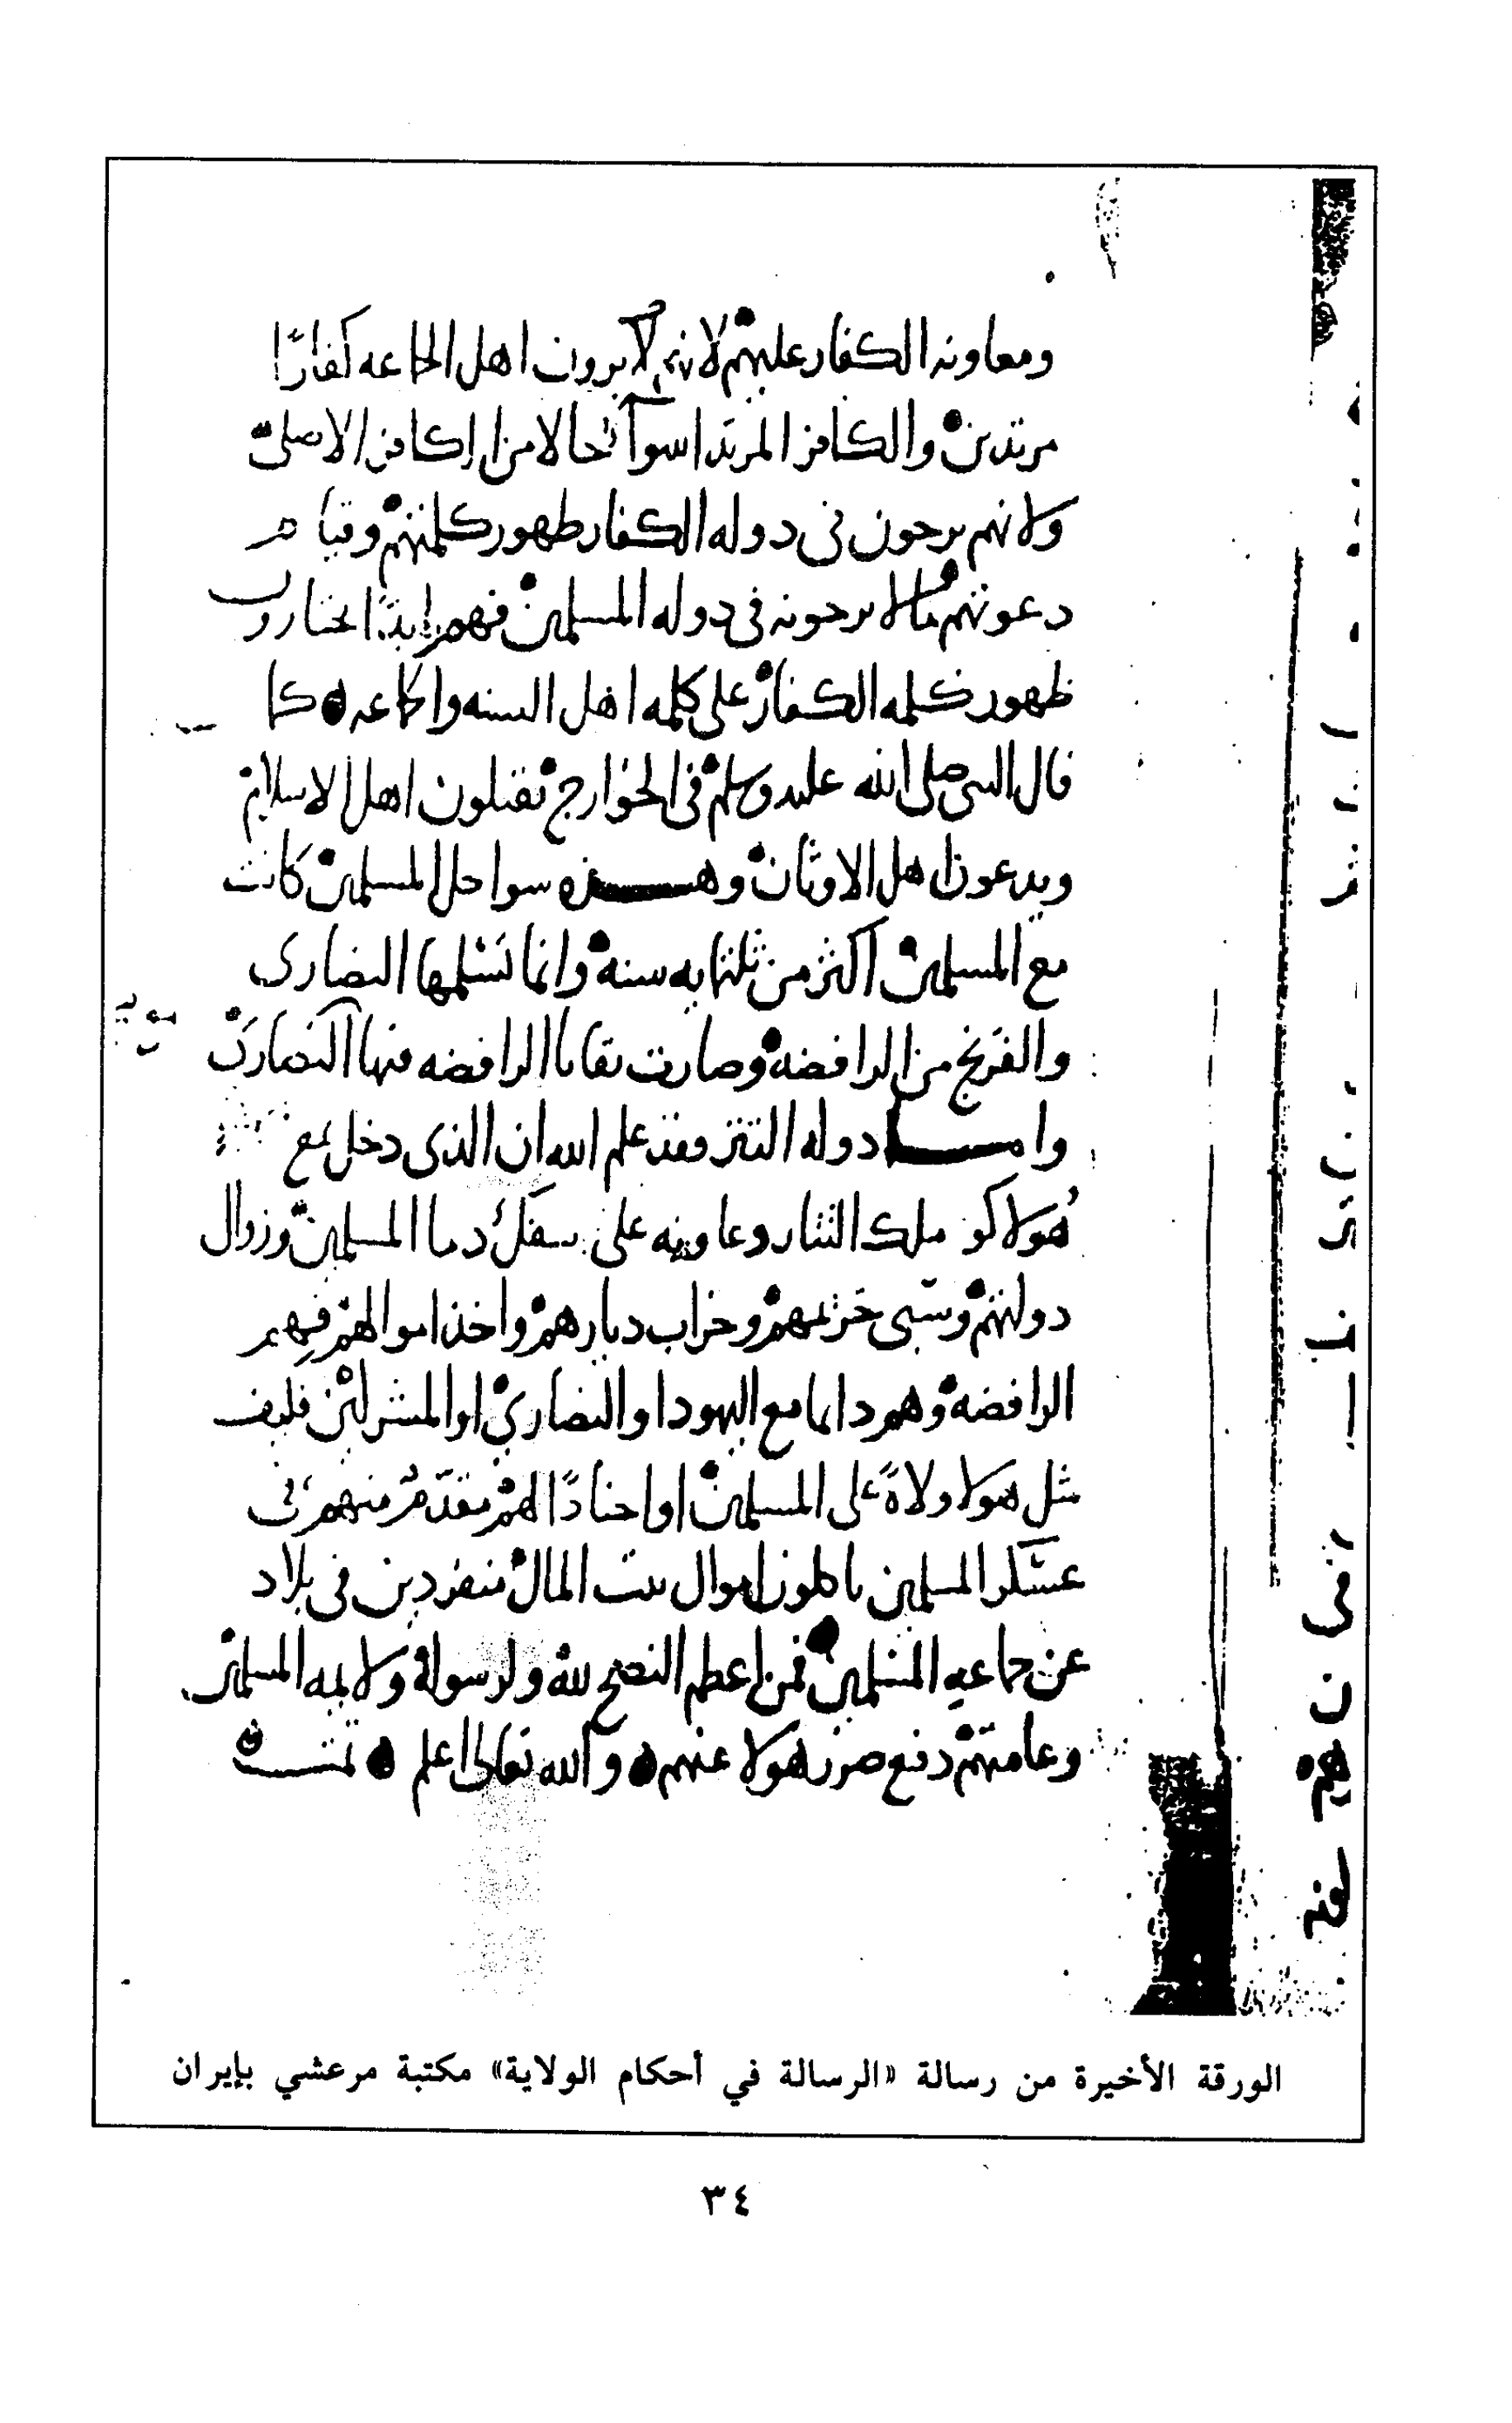 ومعاونه الكفار عليهم لانهم لا يرون اهل الجماعه كفارًا
مرتدين والكافر المرتد اسوأ حالا من الكافر الاصلي
ولانهم يرجون في دوله الكفار ظهور كلمتهم وقيام
دعوتهم ما لا يرجونه في دوله المسلمين فهم ابدًا يختارون
ظهور كلمه الكفار على كلمه اهل السنه والجماعه كما
قال النبي صلى الله عليه وسلم في الخوارج يقتلون اهل الاسلام
ويدعون اهل الاوثان وهذه سواحل المسلمين كانت
مع المسلمين اكثر من ثلثمايه سنه وانما تسلمها النصارى
والفرنج من الرافضه وصارت بقايا الرافضه فيها النصارى
واما دوله التتر فقد علم الله ان الذي دخل مع
هولاكو ملك التتار وعاونه على سفك دما المسلمين وزوال
دولتهم وسبي حريمهم وخراب ديارهم واخذ اموالهم فهم
الرافضه وهم دايما مع اليهود او النصارى او المشركين فكيف
مثل هولا ولاةً على المسلمين او اجنادًا لهم مقدّم منهم في
عسكر المسلمين ياكلون اموال بيت المال منفردين في بلاد
عن جماعه المسلمين فمن اعظم النصح لله ولرسوله ولايمه المسلمين
وعامتهم دفع ضرر هولا عنهم والله تعالى اعلم تمت
الورقة الأخيرة من رسالة «الرسالة في أحكام الولاية» مكتبة مرعشي بإيران
٣٤